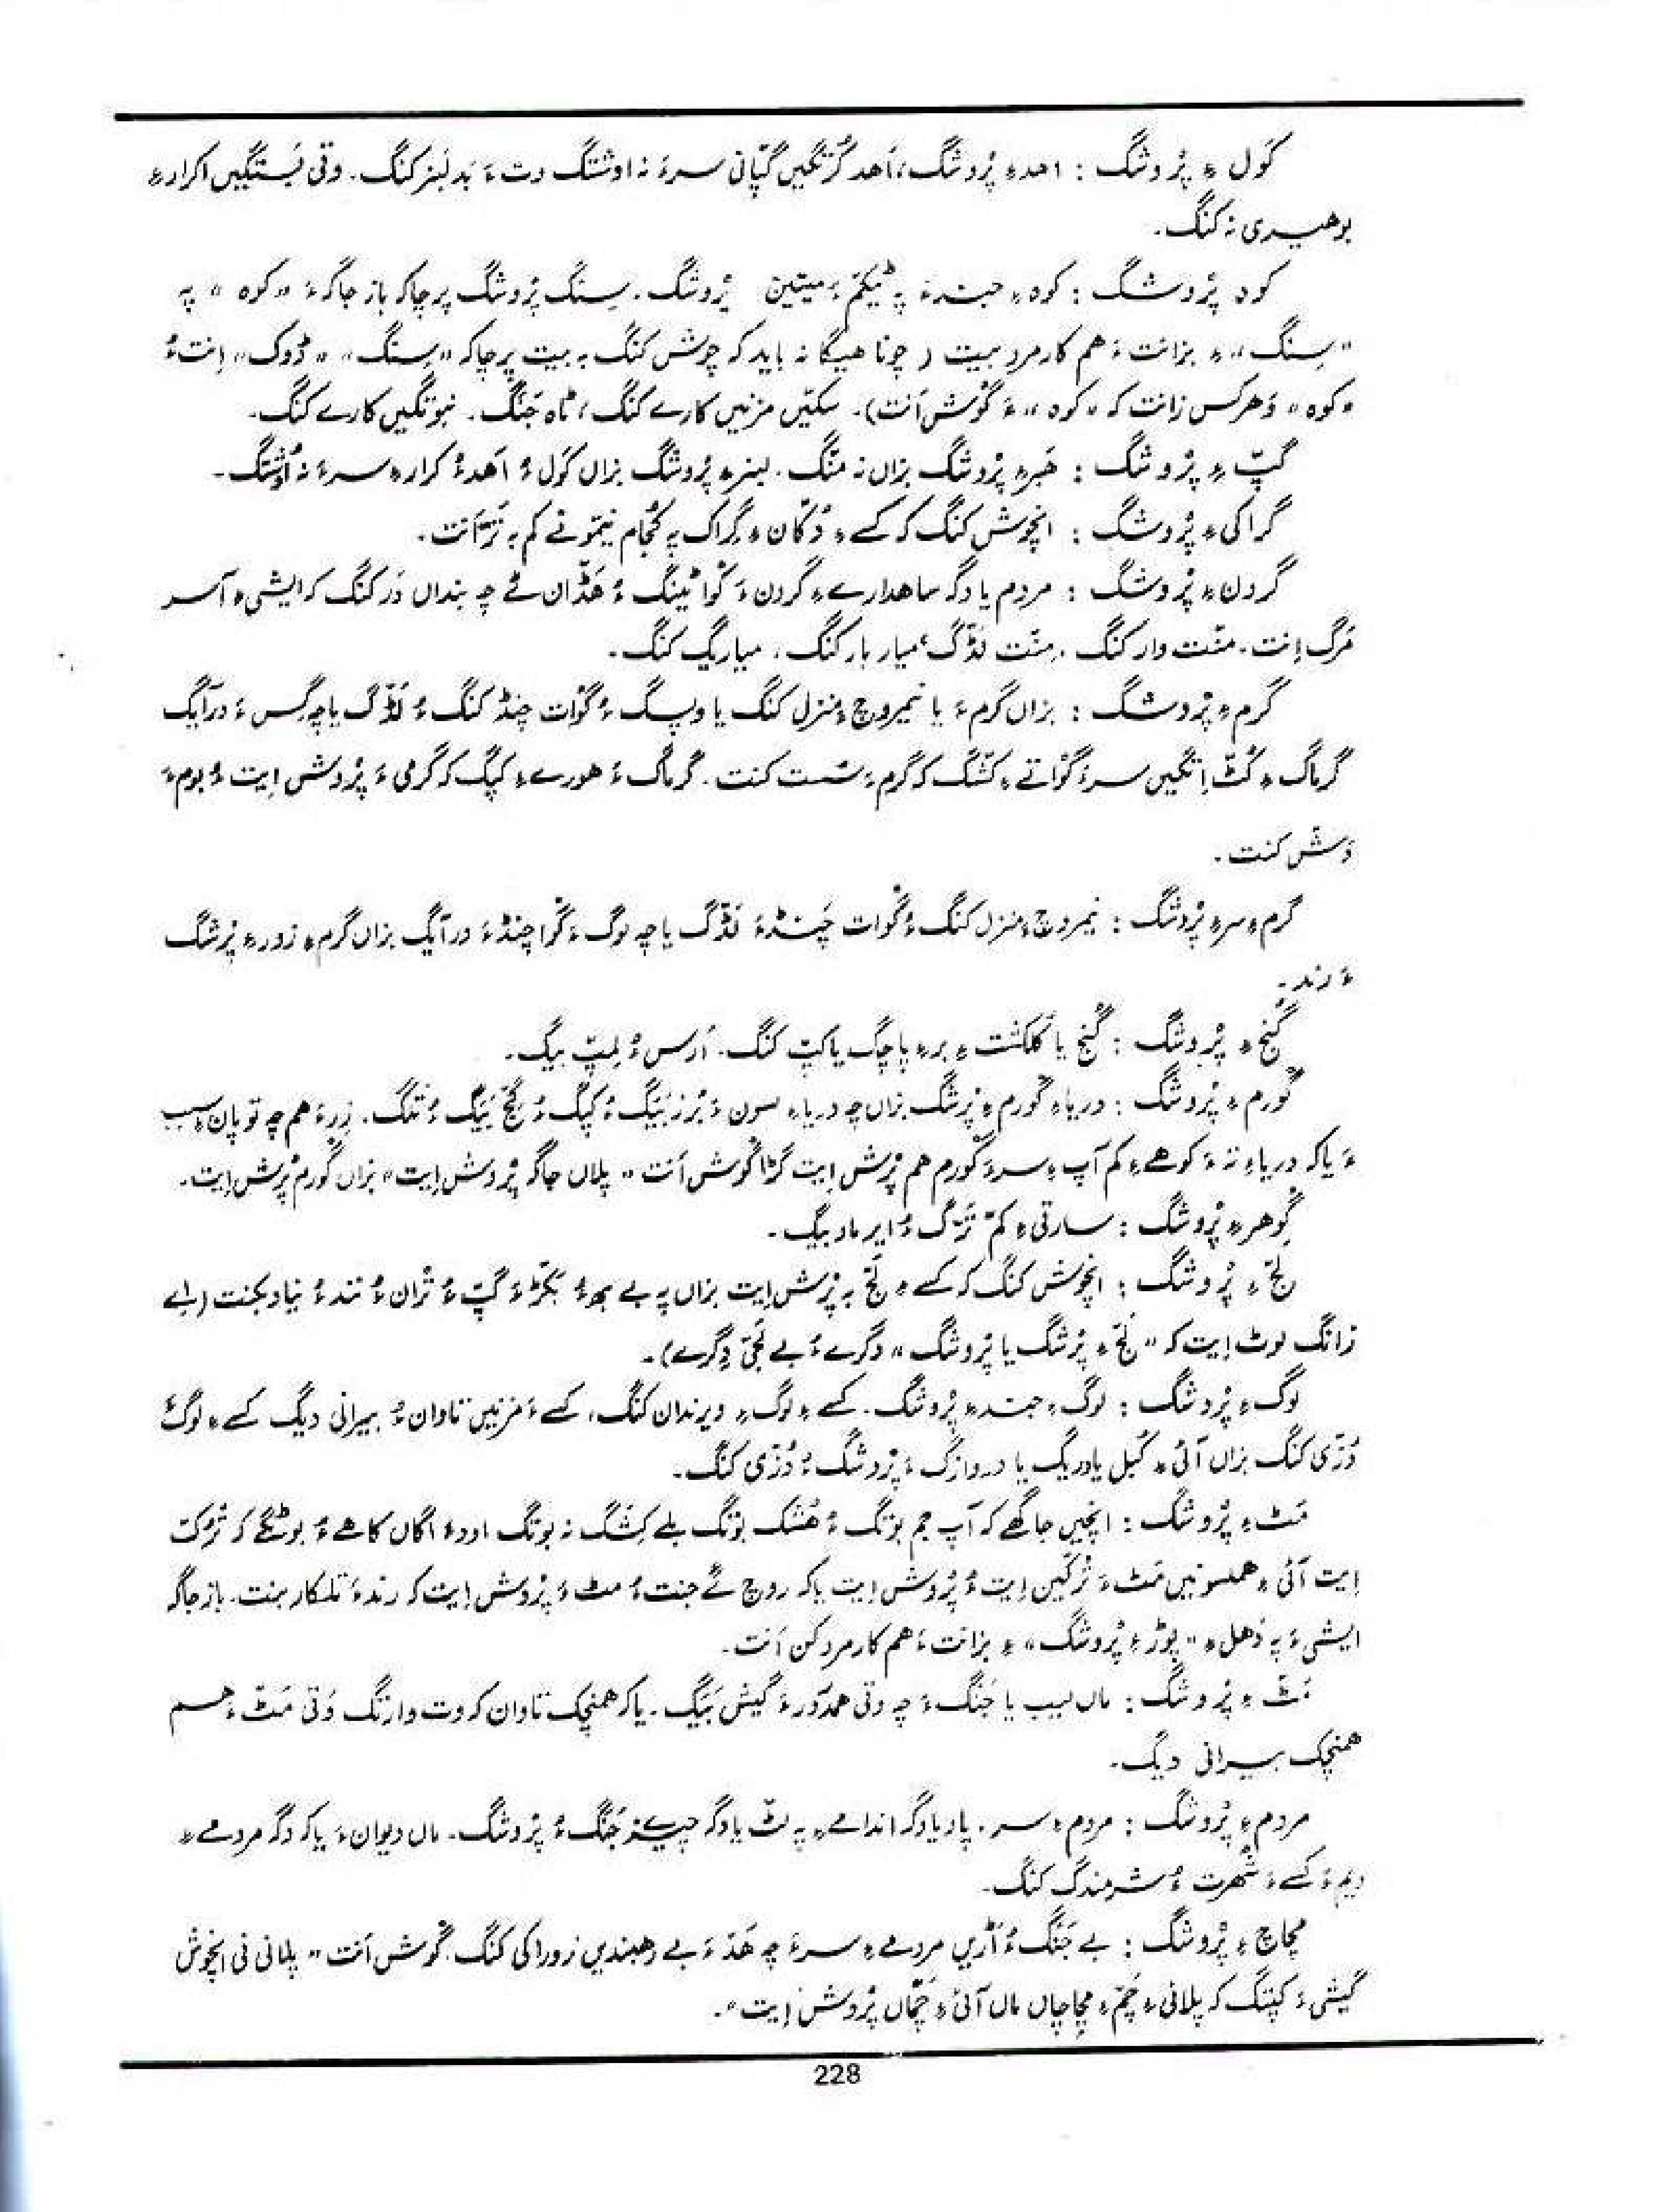 کَول ءِ پُروشگ : احدءِ پُروشگ، اَهد کُرتگیں گپّانی سرءَ نہ اوشتگ وت ءَ بَد لَبز کنگ۔ وتی بَستگیں اکرارءِ
بوهیری نہ کنگ۔
کوہ پُروشگ : کوہ ءِ جندءَ پہ ٹیکم ءُ میتین پُروشگ۔ سِنگ پُروشگ پرچاکہ باز جاگہ ءَ "کوہ" پہ
"سِنگ" ءِ بزانت ءَ هم کارمرد بیت (چونا هیگا نہ باید کہ چوش کنگ بہ بیت پرچاکہ "سِنگ"، "ڈوک" اِنت ءُ
"کوہ" ءَ هرکس زانت کہ "کوہ" ءَ گوش اَنت)۔ سکیّں مزنیں کارے کنگ، ٹاہ جَنگ۔ نبوتگیں کارے کنگ۔
گپّ ءِ پُروشگ : هَبرءِ پُروشگ بزاں نہ منّگ۔ لبزءِ پُروشگ بزاں کَول ءُ اَهدءُ کرارءِ سرءَ نہ اُوشتگ۔
گراکی ءِ پُروشگ : انچوش کنگ کہ کسے ءِ دُکّان ءِ گراک پہ کُجام نیمّونے کم بہ تَرّاَنت۔
گردن ءِ پُروشگ : مردم یا دگہ ساهدارے ءِ گردن ءَ گواٹینگ ءُ هَڈّان ئے چہ بنداں دَر کنگ کہ ایشی ءِ آسر
مَرگ اِنت۔ منّت وار کنگ۔ مِنّت لَڈّگ، میار بار کنگ، میاریگ کنگ۔
گرم ءِ پُروشگ : بزاں گرم ءَ یا نیمروچ ءَ منزل کنگ یا وپسگ ءُ گوات چنڈ کنگ ءُ لَڈّگ یا چہ گِس ءَ درآیگ
گرماگ ءِ کُٹّ اِتگیں سرءَ گواتے ءِ کشّگ کہ گرم ءَ سُست کنت۔ گرماگ ءَ هورے ءِ کپگ کہ گرمی ءَ پُروش اِیت ءُ بوم ءَ
وَش کنت۔
گرم ءِ سرءِ پُروشگ : نیمروچ ءَ منزل کنگ ءُ گوات چَنڈءَ لَڈّگ یا چہ لوگ ءَ گوا چنڈءَ درآیگ بزاں گرم ءِ زورءِ پُرشگ
ءَ رند۔
گُنج ءِ پُروشگ : گُنج یا کَلکُشت ءِ برءِ پاچگ یا کپّ کنگ۔ اَرس ءُ لِمپّ بیگ۔
گورم ءِ پُروشگ : دریاءِ گورم ءِ پُرشگ بزاں چہ دریاءِ سون ءَ بُرز بَیگ ءُ کپگ ءُ کَچّ بَیگ ءُ تَنگ۔ زِرءَ هم چہ توپان ءِ سبب
ءَ یاکہ دریاءِ تہ ءَ کوهے ءِ کم آپ ءِ سرءَ گورم هم پُرش اِیت گڑا گوش اَنت "پلاں جاگہ پُروش اِیت" بزاں گورم پُرش اِیت۔
گوهرءِ پُروشگ : سارتی ءِ کمّ تَرّگ ءُ ایر ماد بیگ۔
لَجّ ءِ پُروشگ : انچوش کنگ کہ کسے ءِ لَجّ بہ پُرش اِیت بزاں پہ بے بهوءُ بَکڑءَ گپّ ءُ تران ءُ نندءُ نیاد بکنت (بلے
زانگ لوٹ اِیت کہ "لَجّ ءِ پُرشگ یا پُروشگ" دگرے ءُ بے لَجّی دِگرے)۔
لوگ ءِ پُروشگ : لوگ ءِ جندءِ پُروشگ۔ کسے ءِ لوگ ءِ ویرندان کنگ، کسے ءَ مزنیں تاوان ءُ بیرانی دیگ کسے ءِ لوگ ءَ
دُزّی کنگ بزاں آئی ءِ کُبل یا دریگ یا دروازگ ءَ پُروشگ ءُ دُزّی کنگ۔
مَٹ ءِ پُروشگ : انچیں جاگهے کہ آپ جم بوتگ ءُ هُشک بوتگ بلے کِشگ نہ بوتگ اودءَ اگاں کاهے ءُ بوٹگے کہ تْرُکّ
اِیت آئی ءِ همسونیں مَٹ ءَ تْرُکّین اِیت ءُ پُروش اِیت یاکہ روچ ئے جنت ءُ مٹ ءَ پُروش اِیت کہ رندءَ تلکار بنت۔ باز جاگہ
ایشی ءَ پہ دُهل ءِ "پوڑءِ پُروشگ" ءِ بزانت ءَ هم کارمرد کن اَنت۔
مَٹّ ءِ پُروشگ : ماں لیب یا جَنگ ءَ چہ وتی همدَورءَ گیش بَیگ۔ یاکہ همنچک تاوان کہ وت وارتگ وَتی مَٹّ ءَ هم
همنچک بیرانی دیگ۔
مردم ءِ پُروشگ : مردم ءِ سر، پاد یا دگہ اندامے ءِ پہ لَٹّ یا دگہ چیزّ جَنگ ءُ پُروشگ۔ ماں دیوان ءَ یاکہ دگہ مردمے ءِ
دیم ءَ کسے ءَ شُهرت ءُ شرمندگ کنگ۔
مُچاچ ءِ پُروشگ : بے جَنگ ءُ آڑیں مردمے ءِ سرءَ چہ هَدءَ بے رهبندیں زوراکی کنگ۔ گوش اَنت "پلانی نی انچوش
گیشی ءَ کپتگ کہ پلانی ءِ چَمّ ءِ مُچاچاں ماں آئی ءِ چَمّاں پُروش اِیت"۔
228